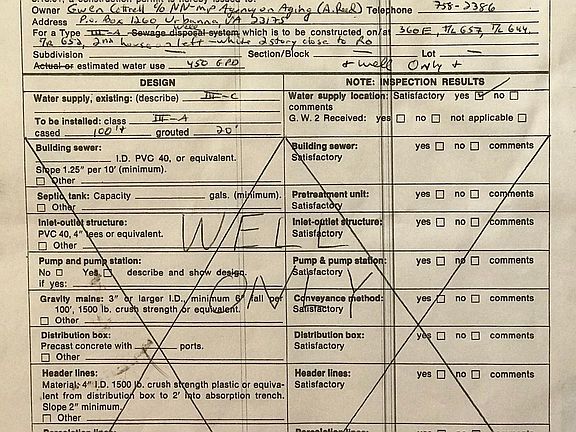 Owner Gwen Cottrell c/o NN-MP Agency on Aging (A. Reed) Telephone 758-2386
Address P.O. Box 1260 Urbanna, VA 23175
For a Type III-A Sewage disposal system which is to be constructed on/at 360E, T/L 657, T/L 644,
T/R 652, 2nd house on left - white 2 story close to Rd
Subdivision — Section/Block — Lot —
Actual or estimated water use 450 GPD * well Only *
DESIGN NOTE: INSPECTION RESULTS
Water supply, existing: (describe) III-C
Water supply location: Satisfactory yes ☑ no ☐
comments
To be installed: class III-A
G. W. 2 Received: yes ☐ no ☐ not applicable ☐
cased 100'+ grouted 20'
Building sewer:
I.D. PVC 40, or equivalent.
Slope 1.25" per 10' (minimum).
☐ Other
Building sewer: yes ☐ no ☐ comments
Satisfactory
Septic tank: Capacity gals. (minimum).
☐ Other
Pretreatment unit: yes ☐ no ☐ comments
Satisfactory
Inlet-outlet structure:
PVC 40, 4" tees or equivalent.
☐ Other
Inlet-outlet structure: yes ☐ no ☐ comments
Satisfactory
WELL
Pump and pump station:
No ☐ Yes ☐ describe and show design.
if yes:
Pump & pump station: yes ☐ no ☐ comments
Satisfactory
ONLY
Gravity mains: 3" or larger I.D., minimum 6" fall per
100', 1500 lb. crush strength or equivalent.
☐ Other
Conveyance method: yes ☐ no ☐ comments
Satisfactory
Distribution box:
Precast concrete with ports.
☐ Other
Distribution box: yes ☐ no ☐ comments
Satisfactory
Header lines:
Material: 4" I.D. 1500 lb. crush strength plastic or equiva-
lent from distribution box to 2' into absorption trench.
Slope 2" minimum.
☐ Other
Header lines: yes ☐ no ☐ comments
Satisfactory